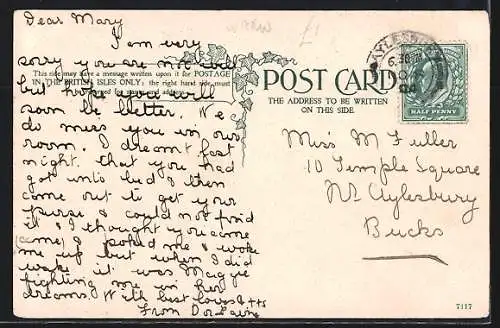 Dear Mary
I am very
sorry you are not well
This side may have a message written upon it for POSTAGE
IN THE BRITISH ISLES ONLY; the right hand side
but hope you will
soon be better. We
do miss you in our
room. I dreamt last
night that you had
got into bed & then
come out to get your
purse & could not find
it & I thought you came
(came) & poked me & woke
me up but when I did
wake it was Maggie
fighting me in her
dreams. With best love &
from
POST CARD
THE ADDRESS TO BE WRITTEN
ON THIS SIDE.
£1
AYLESBURY
6.30
HALF PENNY
Miss M Fuller
10 Temple Square
Nr Aylesbury
Bucks
7117